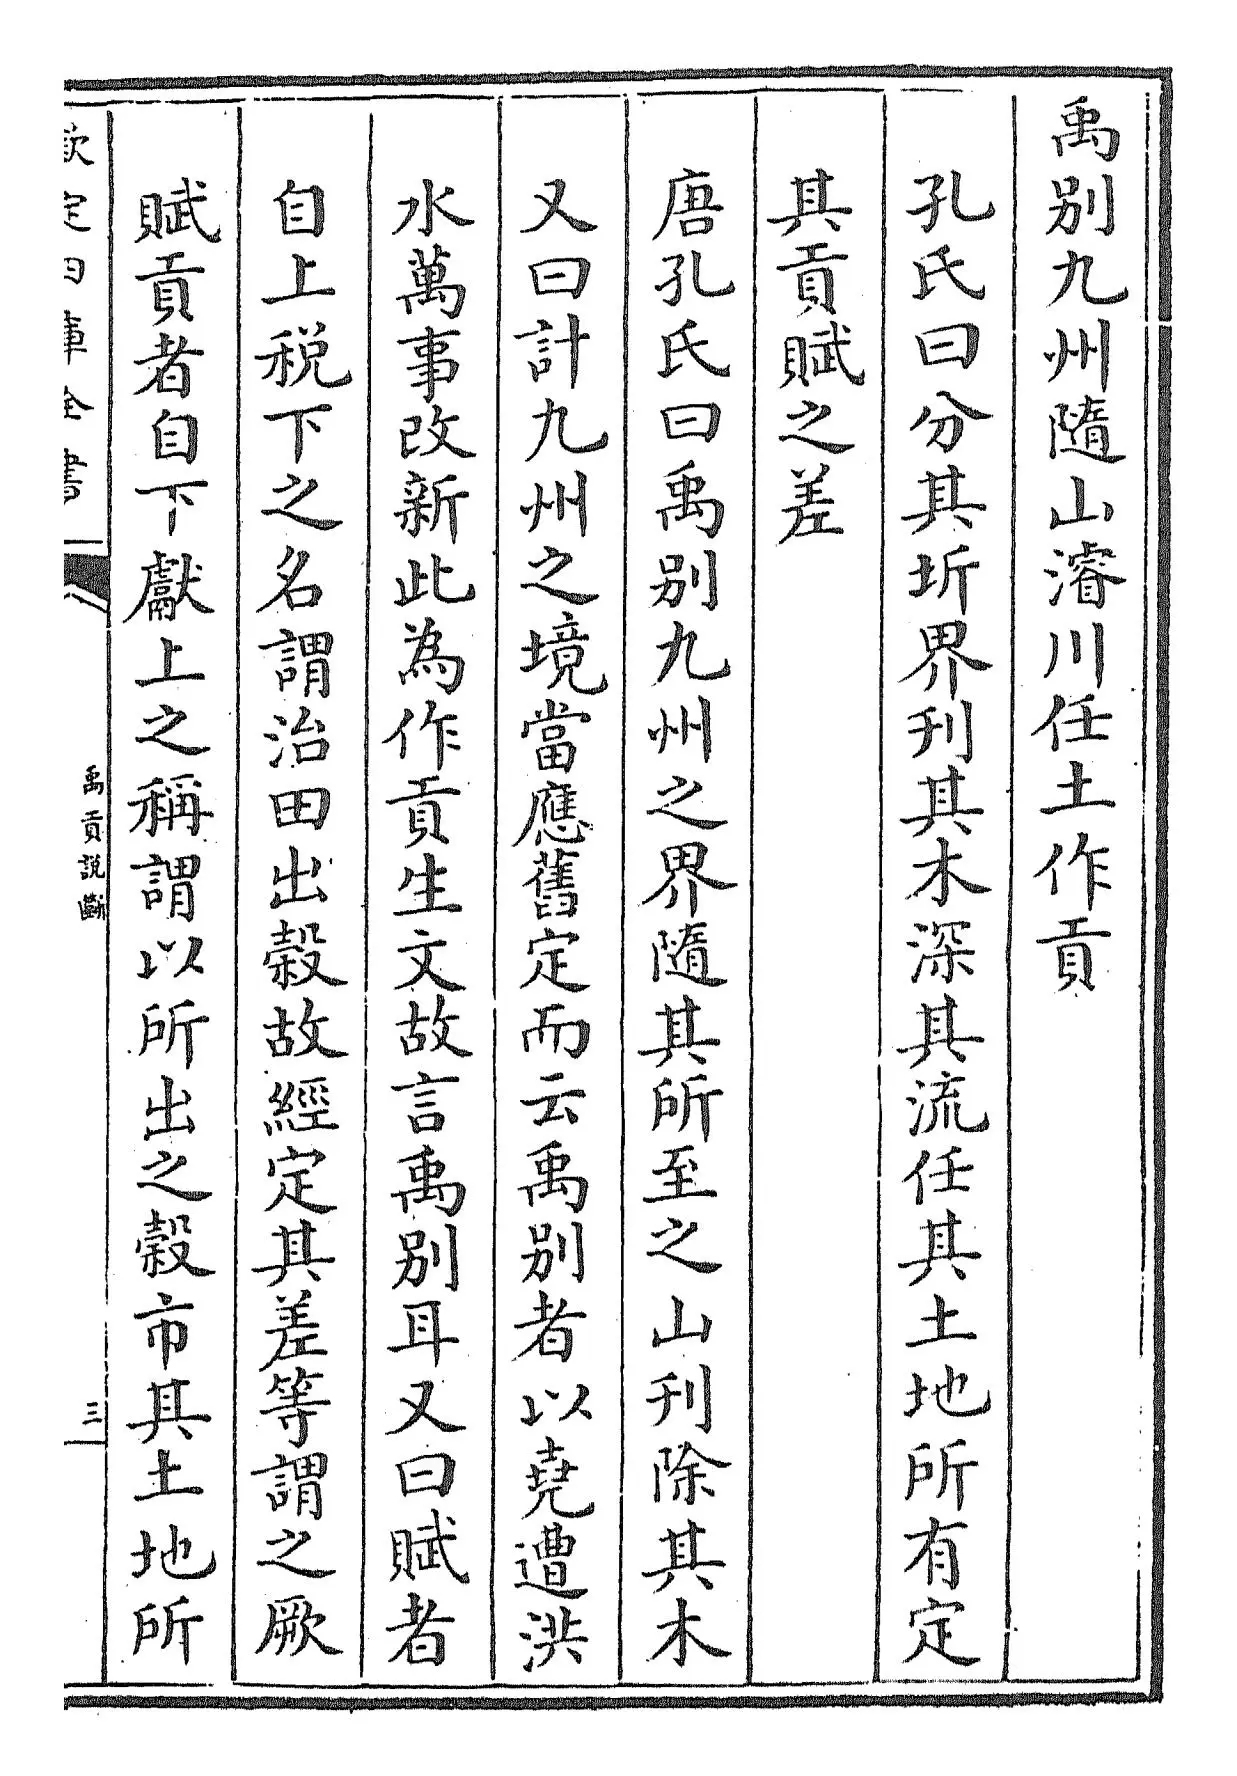 禹别九州隨山濬川任土作貢
孔氏曰分其圻界刋其木深其流任其土地所有定
其貢賦之差
唐孔氏曰禹别九州之界隨其所至之山刋除其木
又曰計九州之境當應舊定而云禹别者以堯遭洪
水萬事改新此為作貢生文故言禹别耳又曰賦者
自上税下之名謂治田出榖故經定其差等謂之厥
賦貢者自下獻上之稱謂以所出之榖市其土地所
欽定四庫全書
禹貢説斷
三